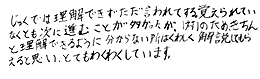 じっくでは理解できずただ言われてする覚えられてい
なくとも次に進むことが多かったが、1対1のためきちん
と理解できるように分からない所はくわしく解説してもら
えると思い、とてもわくわくしています。